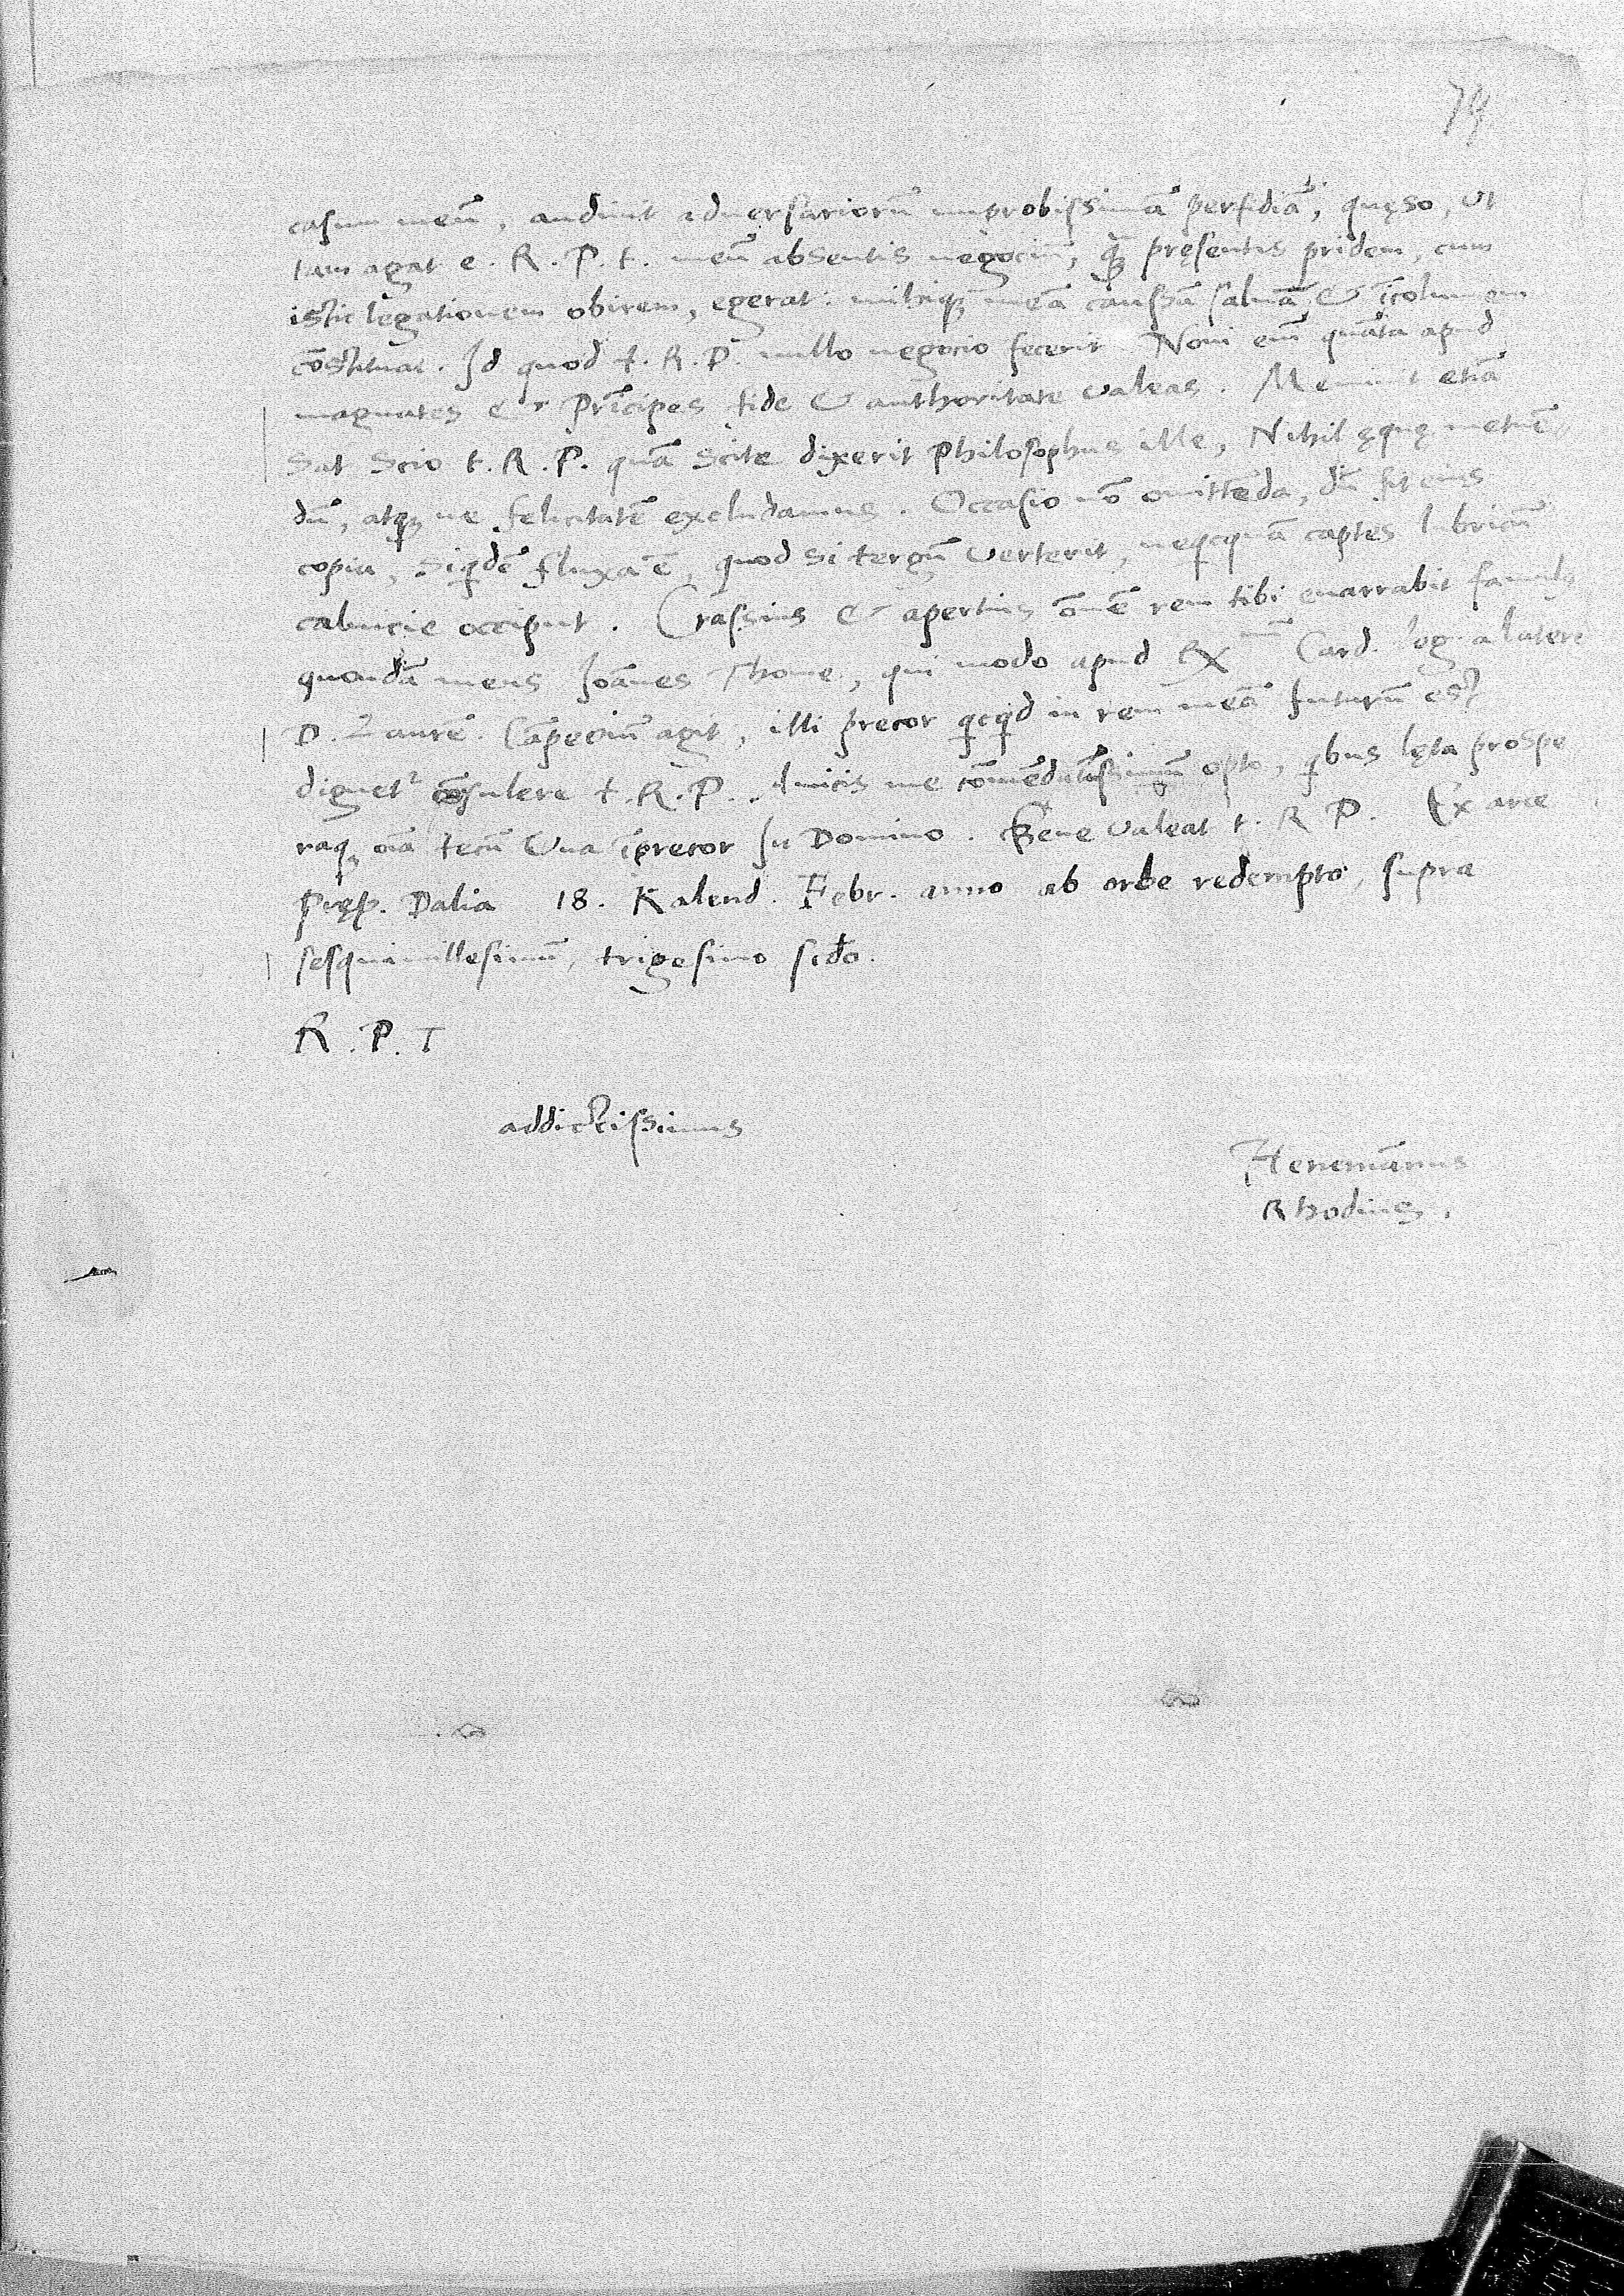 79
casum meū, audiuit aduersariorū improbissimā perfidiā, quęso, ut
tam agat e. R. P. t. meū absentis negociū, quā pręsentis pridem, cum
istic legationem obirem, egerat: mihiq; meā caussā saluā & īcolumem
cōstituat. Id quod t. R. P. nullo negocio fecerit. Noui em̄ quāta apud
magnates & Prīcipes fide & authoritate ualeas. Meminit etiā
sat scio t. R. P. quā scite dixerit Philosophus ille, Nihil ęque metuē
dū, atq; ne felicitatē excludamus. Occasio nō omittēda, dū fit eius
copia, siqdē fluxa ē, quod si tergū uerterit, neqcquā captes lubricū
caluicie occiput. Crassius & apertius ōmē rem tibi enarrabit famulus
quondā meus Ioānes Thome, qui modo apud Rx mū Card. leg. a latere
D. Laurē. Cāpegiū agit, illi precor qcqd in rem meā futurū est
dignet' cōsulere t. R. P. Amicis me cōmēdatissimum opto, qbus lęta prospe
raq; oīa tecū una īprecor In Domino. Bene ualeat t. R P. Ex arce
pręp. Dalia 18. Kalend. Febr. anno ab orbe redempto, supra
sesquimillesimū, trigesimo sc̄do.
R. P. T
addictissimus
Henemānus
Rhodius.